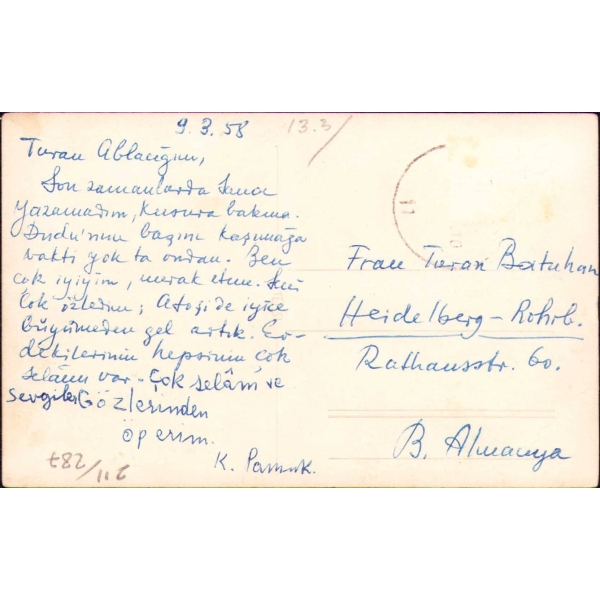 9.3.58
13.3/
Turan Ablacığım,
Son zamanlarda sana
yazamadım, kusura bakma.
Dudu'nun başını kaşımağa
vakti yok ta ondan. Ben
çok iyiyim, merak etme. Seni
çok özledim; Atoşi de iyice
büyümeden gel artık. Ev-
dekilerinin hepsinin çok
selâmı var - çok selâm ve
sevgiler GÖZlerinden
öperim.
K. Pamuk.
Frau Turan Batuhan
Heidelberg - Rohrb.
Rathausstr. 60.
B. Almanya
11